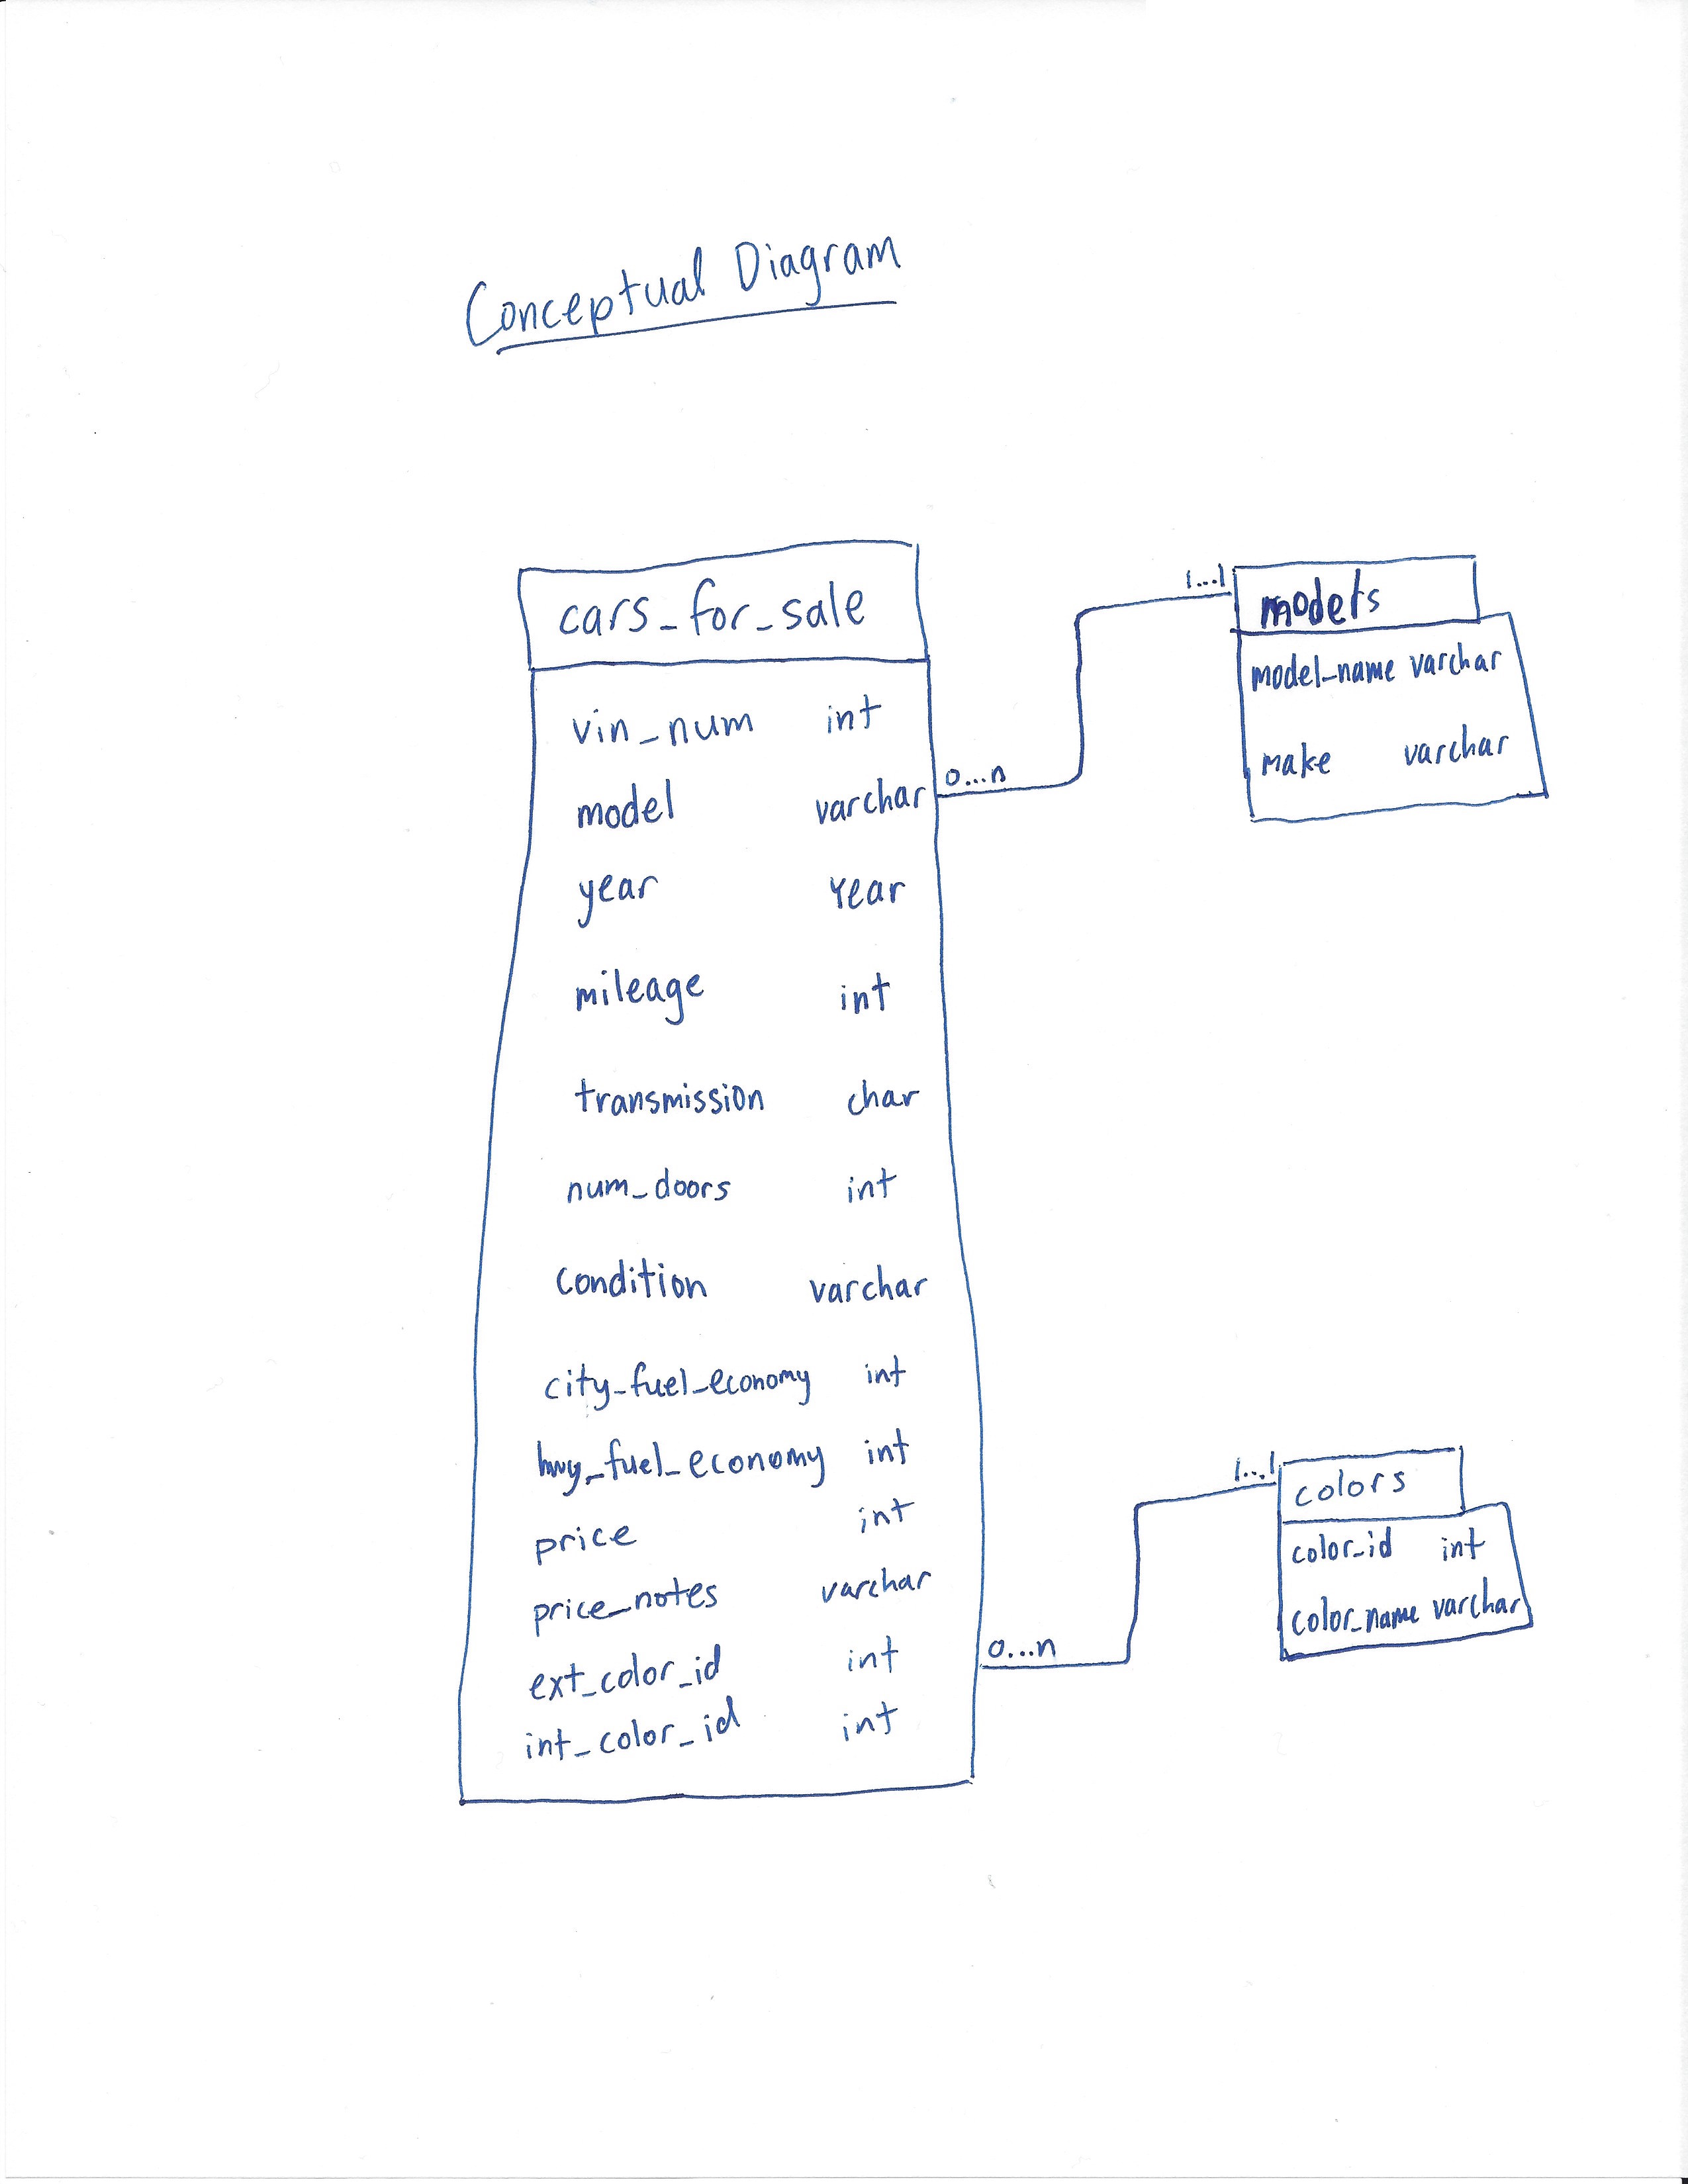 Conceptual Diagram
cars_for_sale
vin_num int
model varchar
year Year
mileage int
transmission char
num_doors int
condition varchar
city_fuel_economy int
hwy_fuel_economy int
price int
price_notes varchar
ext_color_id int
int_color_id int
0...n
1...1
models
model_name varchar
make varchar
0...n
1...1
colors
color_id int
color_name varchar